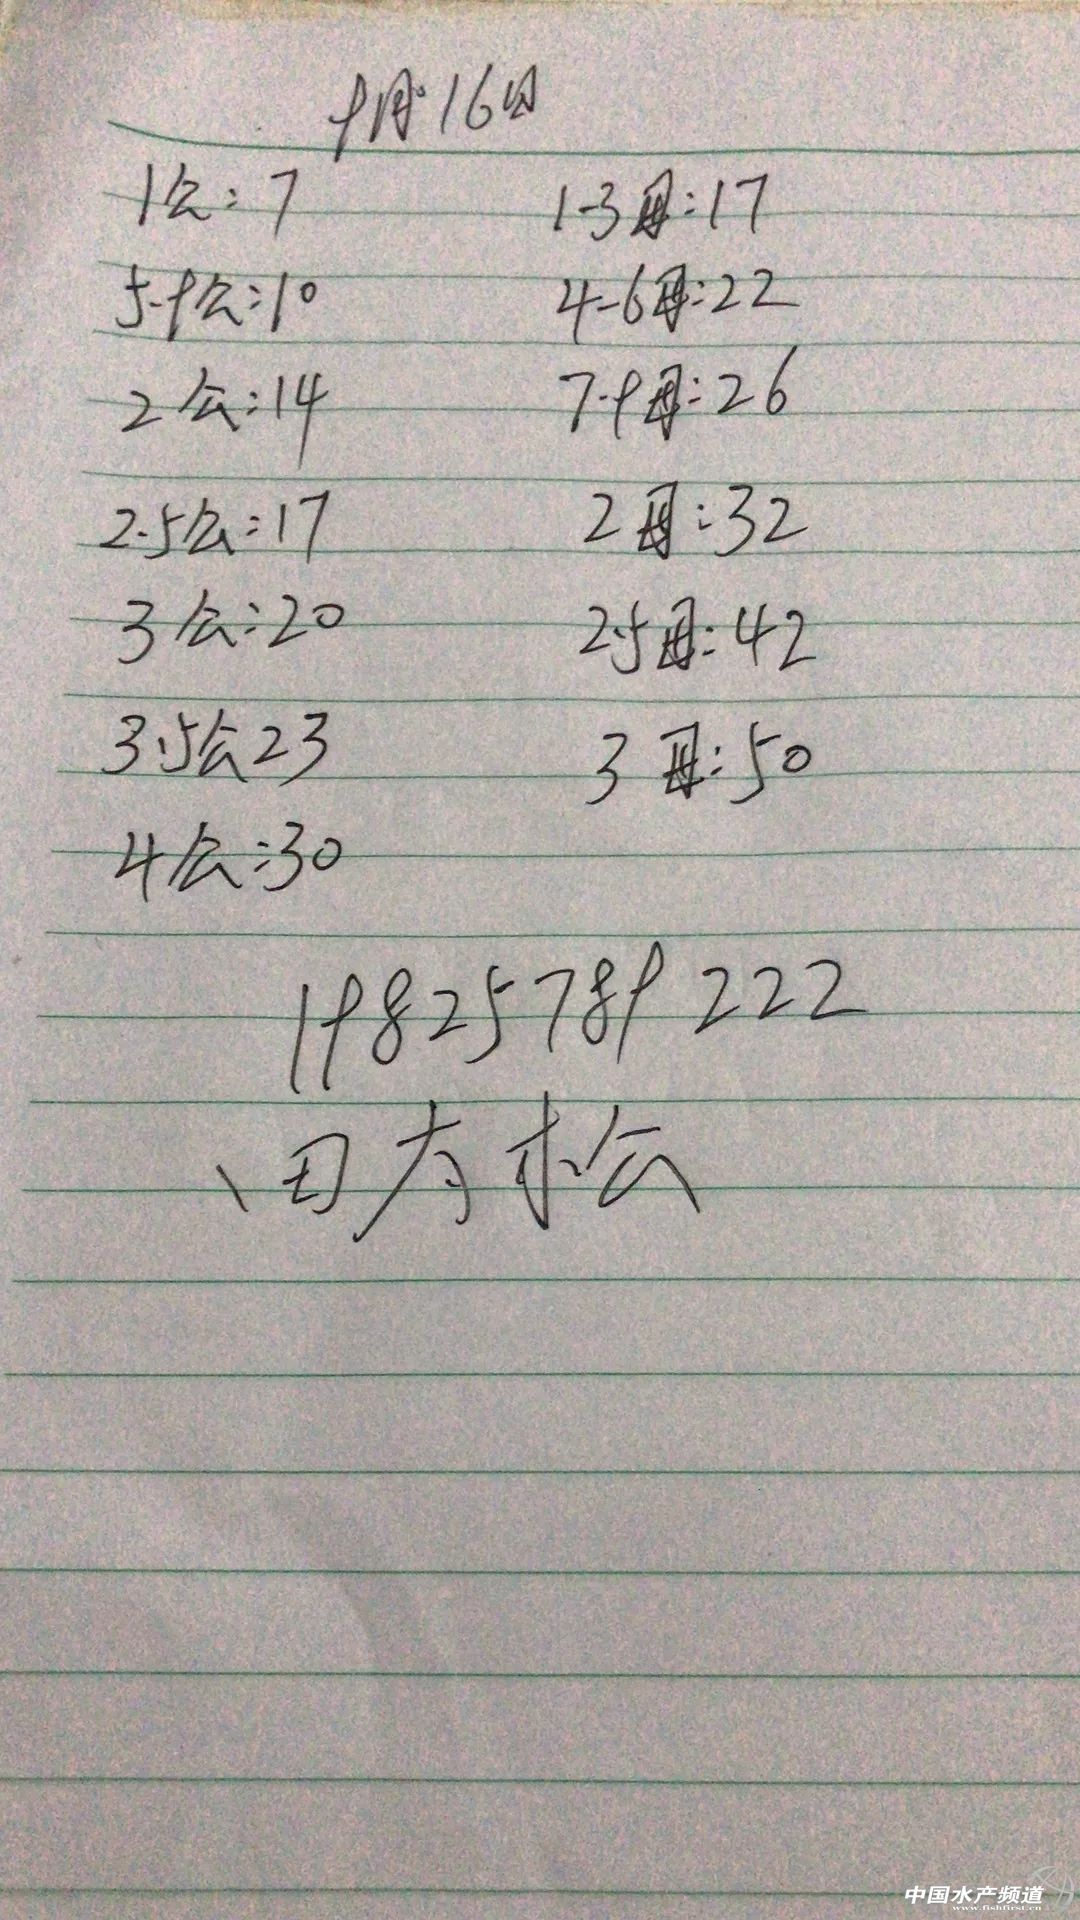 9月16日
1公:7
1-3母:17
5-9公:10
4-6母:22
2公:14
7-9母:26
2.5公:17
2母:32
3公:20
2.5母:42
3.5公23
3母:50
4公:30
19825789222
田有松
中国水产频道
www.fishfirst.cn